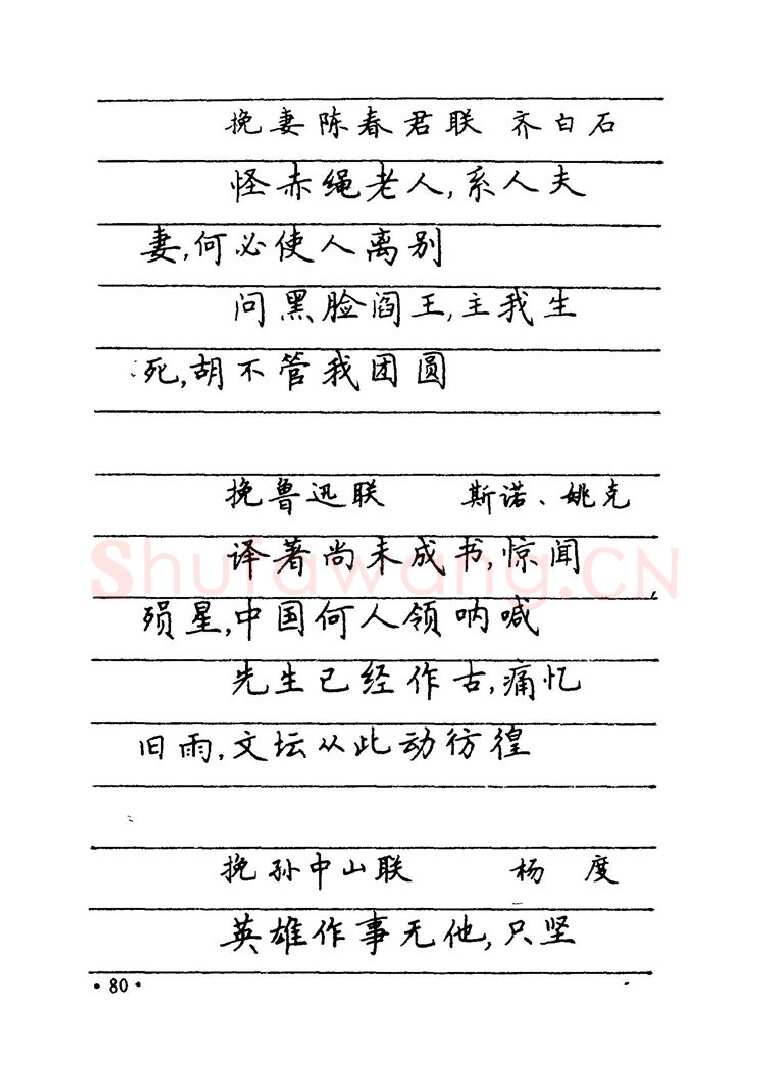 挽妻陈春君联 齐白石
怪赤绳老人,系人夫
妻,何必使人离别
问黑脸阎王,主我生
死,胡不管我团圆
挽鲁迅联 斯诺、姚克
译著尚未成书,惊闻
殒星,中国何人领呐喊
先生已经作古,痛忆
旧雨,文坛从此动彷徨
挽孙中山联 杨 度
英雄作事无他,只坚
·80·
Shufawang.CN